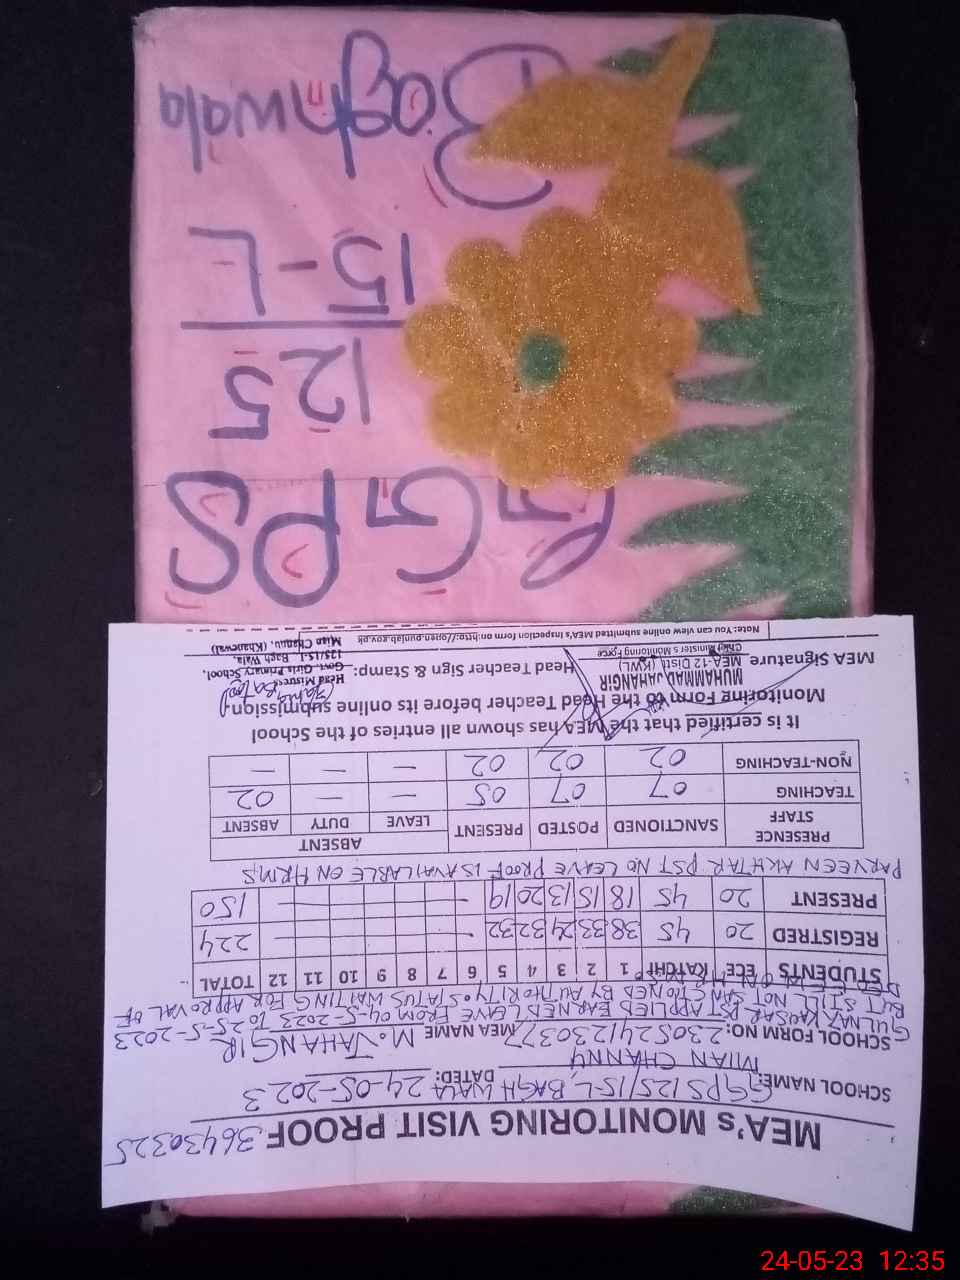 MEA's MONITORING VISIT PROOF 36430325
SCHOOL NAME: GGPS 125/15-L, BAGH WALA DATED: 24-05-2023
MIAN CHANNU
SCHOOL FORM NO: 2305241230377 MEA NAME M. JAHANGIR
GULNAZ KAUSAR PST APPLIED EARNED LEAVE FROM 04-5-2023 TO 25-5-2023
BUT STILL NOT SANCTIONED BY AUTHORITY. STATUS WAITING FOR APPROVAL OF
STUDENTS ECE KATCHI 1 2 3 4 5 6 7 8 9 10 11 12 TOTAL
REGISTRED 20 45 38 33 24 32 32 224
PRESENT 20 45 18 15 13 20 19 150
PARVEEN AKHTAR PST NO LEAVE PROOF IS AVAILABLE ON HRMS
PRESENCE STAFF SANCTIONED POSTED PRESENT ABSENT
LEAVE DUTY ABSENT
TEACHING 07 07 05 — — 02
NON-TEACHING 02 02 02 — — —
It is certified that the MEA has shown all entries of the School
Monitoring Form to the Head Teacher before its online submission.
MEA Signature MUHAMMAD JAHANGIR Head Teacher Sign & Stamp:
MEA-12 Distt (KWL)
Chief Minister's Monitoring Force
Head Mistress
Govt. Girls Primary School,
125/15-L Bagh Wala,
Mian Channu, (Khanewal)
Note: You can view online submitted MEA's inspection form on:http://open.punjab.gov.pk
GGPS
125
15-L
Baghwala
24-05-23 12:35